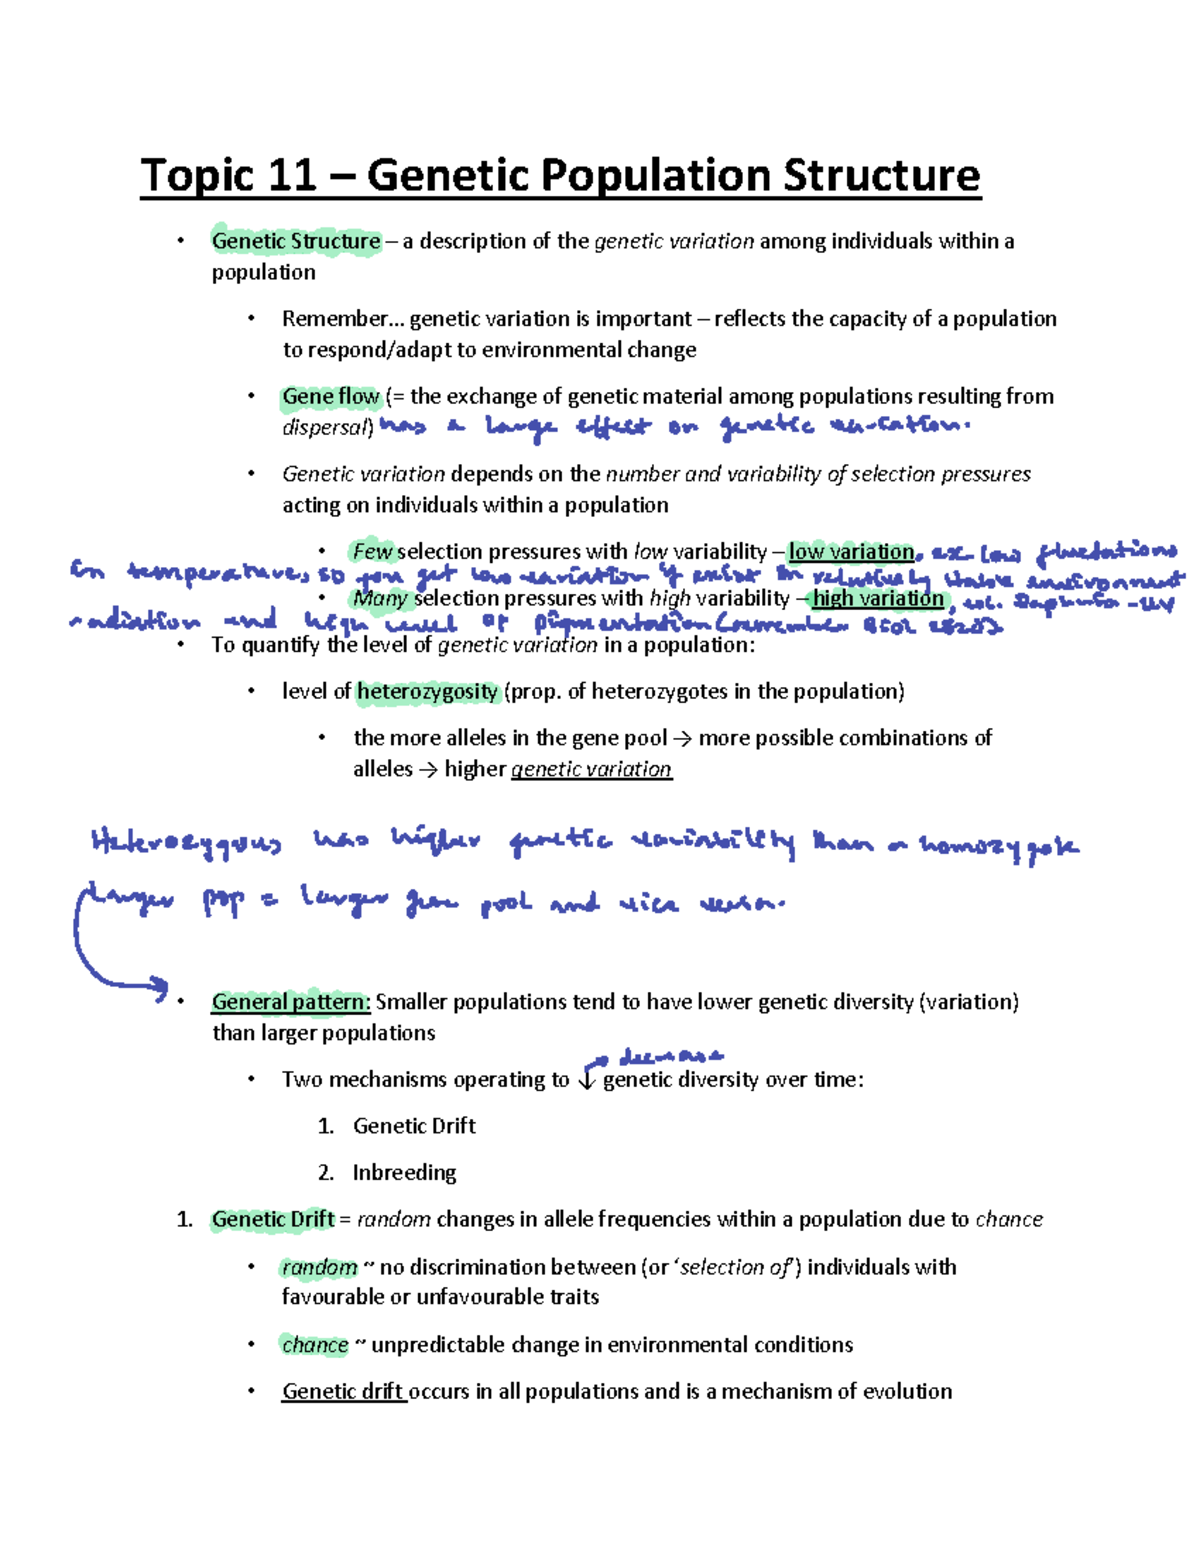 Topic 11 – Genetic Population Structure
• Genetic Structure – a description of the genetic variation among individuals within a
population
• Remember... genetic variation is important – reflects the capacity of a population
to respond/adapt to environmental change
• Gene flow (= the exchange of genetic material among populations resulting from
dispersal) has a large effect on genetic variation.
• Genetic variation depends on the number and variability of selection pressures
acting on individuals within a population
• Few selection pressures with low variability – low variation, ex. low fluctations
in temperature, so you get low variation if exist in relatively stable environment
• Many selection pressures with high variability – high variation, Daphnia - UV
radiation and high level of pigmentation (remember Biol
• To quantify the level of genetic variation in a population:
• level of heterozygosity (prop. of heterozygotes in the population)
• the more alleles in the gene pool → more possible combinations of
alleles → higher genetic variation
Heterozygous has higher genetic variability than a homozygote
Larger pop = larger gene pool and vice versa.
• General pattern: Smaller populations tend to have lower genetic diversity (variation)
than larger populations
decrease
• Two mechanisms operating to ↓ genetic diversity over time:
1. Genetic Drift
2. Inbreeding
1. Genetic Drift = random changes in allele frequencies within a population due to chance
• random ~ no discrimination between (or ‘selection of’) individuals with
favourable or unfavourable traits
• chance ~ unpredictable change in environmental conditions
• Genetic drift occurs in all populations and is a mechanism of evolution